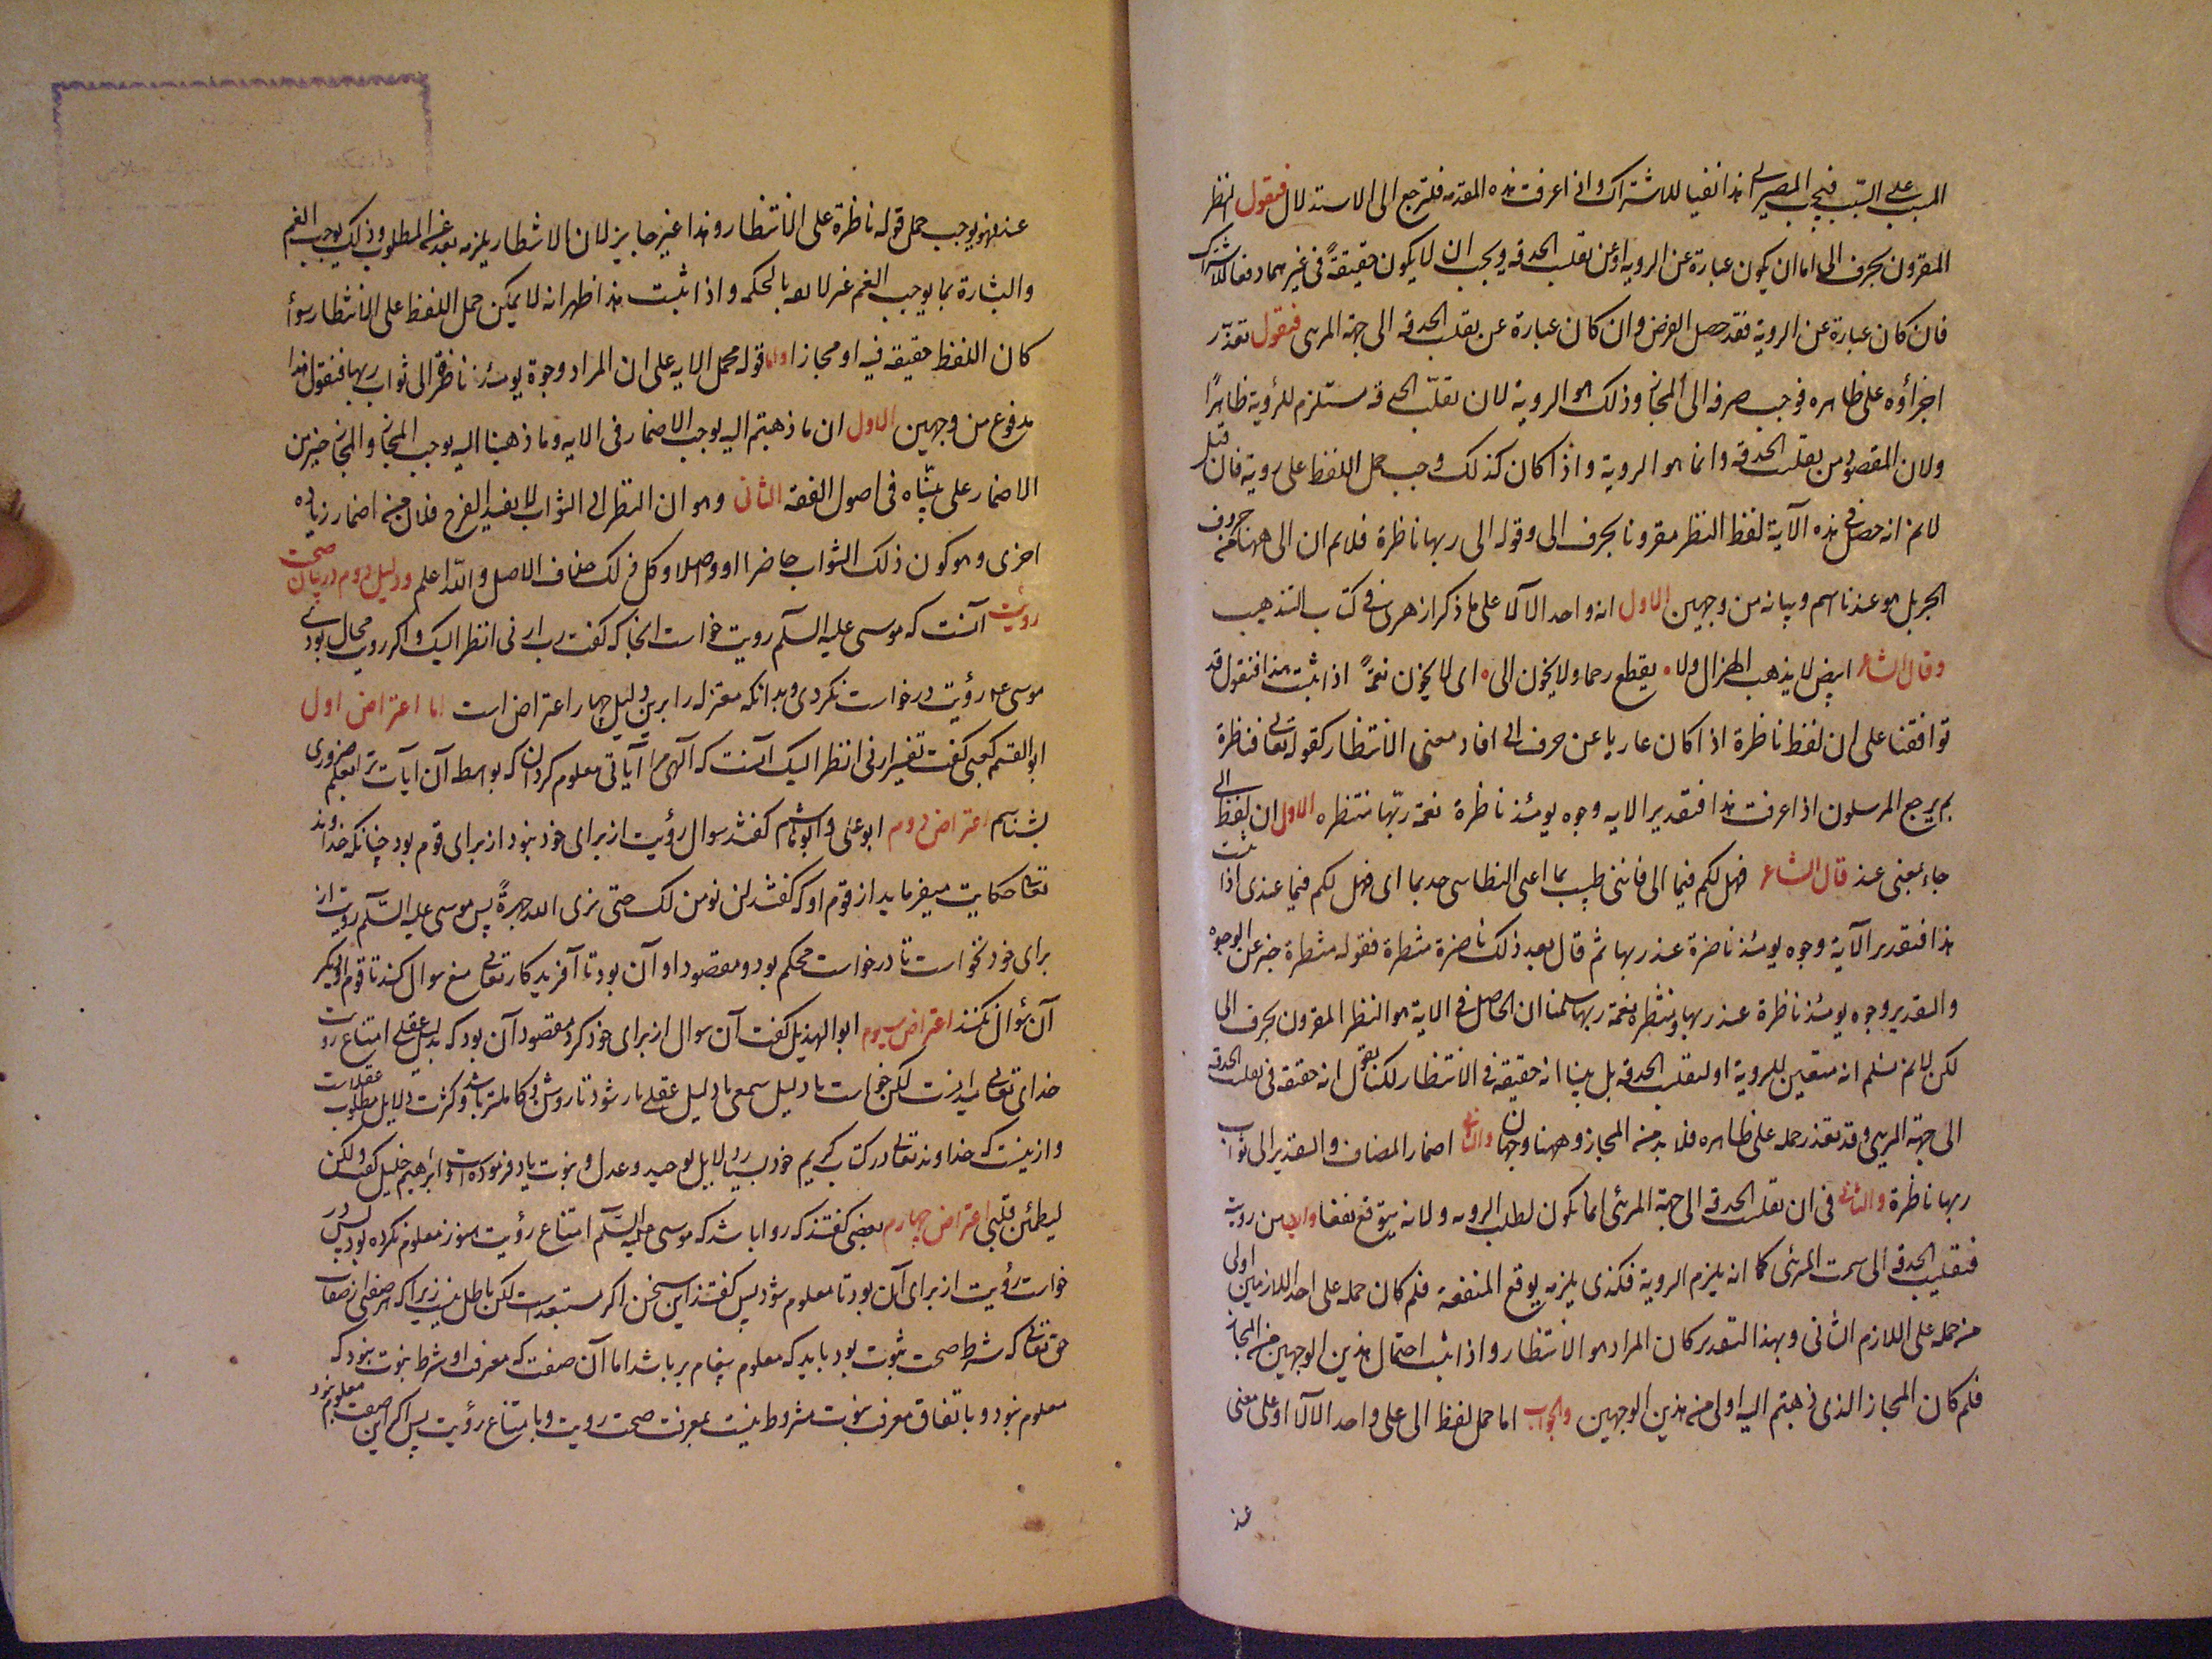 المسبب على السبب فيجب المصير الى هذا نفيا للاشتراك واذا عرفت هذه المقدمه فلنرجع الى الاستدلال فنقول النظر
المقرون بحرف الى اما ان يكون عبارة عن الرويه او عن تقلب الحدقه ويجب ان لا يكون حقيقةً فى غيرهما دفعا للاشتراك
فان كان عبارة عن الروية فقد حصل الغرض وان كان عبارة عن تقلب الحدقه الى جهة المرئى فنقول تعذّر
اجراؤه على ظاهره فوجب صرفه الى المجاز وذلك هو الروية لان تقلّب الحدقه مستلزم للرؤية ظاهرًا
ولان المقصود من تقلب الحدقه وانما هو الروية واذا كان كذلك وجب حمل اللفظ على روية فان قيل
لا نم انه حصل فى هذه الآية لفظ النظر مقرونا بحرف الى وقوله الى ربها ناظرة فلا نم ان الى ههنا من حروف
الجر بل هو عندنا اسم وبيانه من وجهين الاول انه واحد الآلا على ما ذكر ازهرى فى كتاب التذهيب
وقال الشاعر ابيض لا يذهب الهزال ولا ٥ يقطع رحما ولا يخون الى ٥ اى لا يخون نعمةً اذا ثبت هذا فنقول قد
توافقنا على ان لفظ ناظرة اذا كان عاريا عن حرف الى افاد معنى الانتظار كقوله تعالى فناظرة
بم يرجع المرسلون اذا عرفت هذا فتقدير الايه وجوه يومئذ ناظرة نعمة ربّها منتظره الاول ان لفظ الى
جاء بمعنى عند قال الشاعر فهل لكم فيما الى فاننى طبيب بما اعى النطاسى حديما اى فهل لكم فيما عندى اذا ثبت
هذا فتقدير الآية وجوه يومئذ ناضرة عند ربها ثم قال بعد ذلك ناضرة منتظرة فقوله منتظرة خبر عن الوجوه
والتقدير وجوه يومئذ ناظرة عند ربها ومنتظره نعمة ربها سلمنا ان الحاصل فى الاية هو النظر المقرون بحرف الى
لكن لا نم نسلم انه متعين للروية او لتقلب الحدقه بل بينا انه حقيقه فى الانتظار لكنا نقول انه حقيقه فى تقلب الحدقه
الى جهة المرئى وقد تعذر حمله على ظاهره فلا بد من المجاز وههنا وجهان والثانى اضمار المضاف والتقدير الى ثواب
ربها ناظرة والثانى فى ان تقلب الحدقه الى جهة المرئى انما يكون لطلب الرويه ولانه يتوقع نفعا من روية
فتقليب الحدقه الى سمت المرئى كما انه يلزم الروية فكذى يلزمه يوقع المنفعة فلم كان حمله على احد اللازمين اولى
من حمله على اللازم الثانى وبهذا التقدير كان المراد هو الانتظار واذا ثبت احتمال هذين الوجهين من المجاز
فلم كان المجاز الذى ذهبتم اليه اولى من هذين الوجهين والجواب اما حمل لفظ الى على واحد الآلا او على معنى
عند
عند فهو يوجب حمل قوله ناظرة على الانتظار وهذا غير جايز لان الانتظار يلزمه بعد عن المطلوب وذلك يوجب الغم
والبشارة بما يوجب الغم غير لايق بالحكمه واذا ثبت هذا ظهر انه لا يمكن حمل اللفظ على الانتظار سوأ
كان اللفظ حقيقه فيه او مجازا واما قوله محمل الايه على ان المراد وجوة يومئذ ناظرة الى ثواب ربها فنقول هذا
مدفوع من وجهين الاول ان ما ذهبتم اليه يوجب الاضمار فى الايه وما ذهبنا اليه يوجب المجاز والمجاز خير من
الاضمار على بيّناه فى اصول الفقه الثانى وهو ان النظر الى الثواب لا يفيد الفرح فلا بد من اضمار زياده
اخرى وهو كون ذلك الثواب حاضرا او واصلا وكل ذلك خلاف الاصل والله اعلم ودليل دوم در بيان صحت
رويت آنست كه موسى عليه السلم رويت خواست انجا كه كفت رب ارنى انظر اليك واكر رويت محال بودى
موسى عله رؤيت درخواست نكردى وبدانكه معتزله را برين دليل چهار اعتراض است اما اعتراض اول
ابو القسم كعبى كفت تفسير ارنى انظر اليك آنست كه آلهى مرا آياتى معلوم كردان كه بواسطه آن آيات ترا بعلم ضرورى
بشناسم اعتراض دوم ابو على وابو هاشم كفتند سوال رؤيت از براى خود نبود از براى قوم بود چنانكه خداوند
تعالى حكايت ميفرمايد از قوم او كه كفتند لن نومن لك حتى نرى الله جهرةً پس موسى عليه السّلم رويت از
براى خود نخواست تا درخواست محكم بود ومقصود او آن بود تا آفريدكار تعالى منع سوال كند تا قوم او ديكر
آن سؤال نكنند اعتراض سيوم ابو الهذيل كفت آن سوال از براى خود كرد ومقصود آن بود كه بدليل عقلى امتناع رويت
خداى تعالى ميدانست لكن خواست تا دليل سمعى با دليل عقلى يار شود تا روشن تر وكاملتر باشد وكثرت دلايل مطلوب عقلاست
وازينست كه خداوند تعالى در كتاب كريم خود بسيار دلايل توحيد وعدل ونبوت ياد فرموده است وابراهيم خليل كفت ولكن
ليطمئن قلبى اعتراض چهارم بعضى كفتند كه روا باشد كه موسى عليه السّلم امتناع رؤيت هنوز معلوم نكرده بود پس در
خواست رؤيت از براى آن بود تا معلوم شود پس كفتند اين سخن اكر مستبعد است لكن باطل نيست زيرا كه هر صفتى از صفات
حق تعالى كه شرط صحت نبوت بود بايد كه معلوم پيغامبر باشد اما آن صفت كه معرفت او شرط نبوت نبود كه
معلوم نبود وباتفاق معرفت نبوت مشروط نيست بمعرفت صحت رويت وبامتناع رؤيت پس اكر اين صفت معلوم نبود